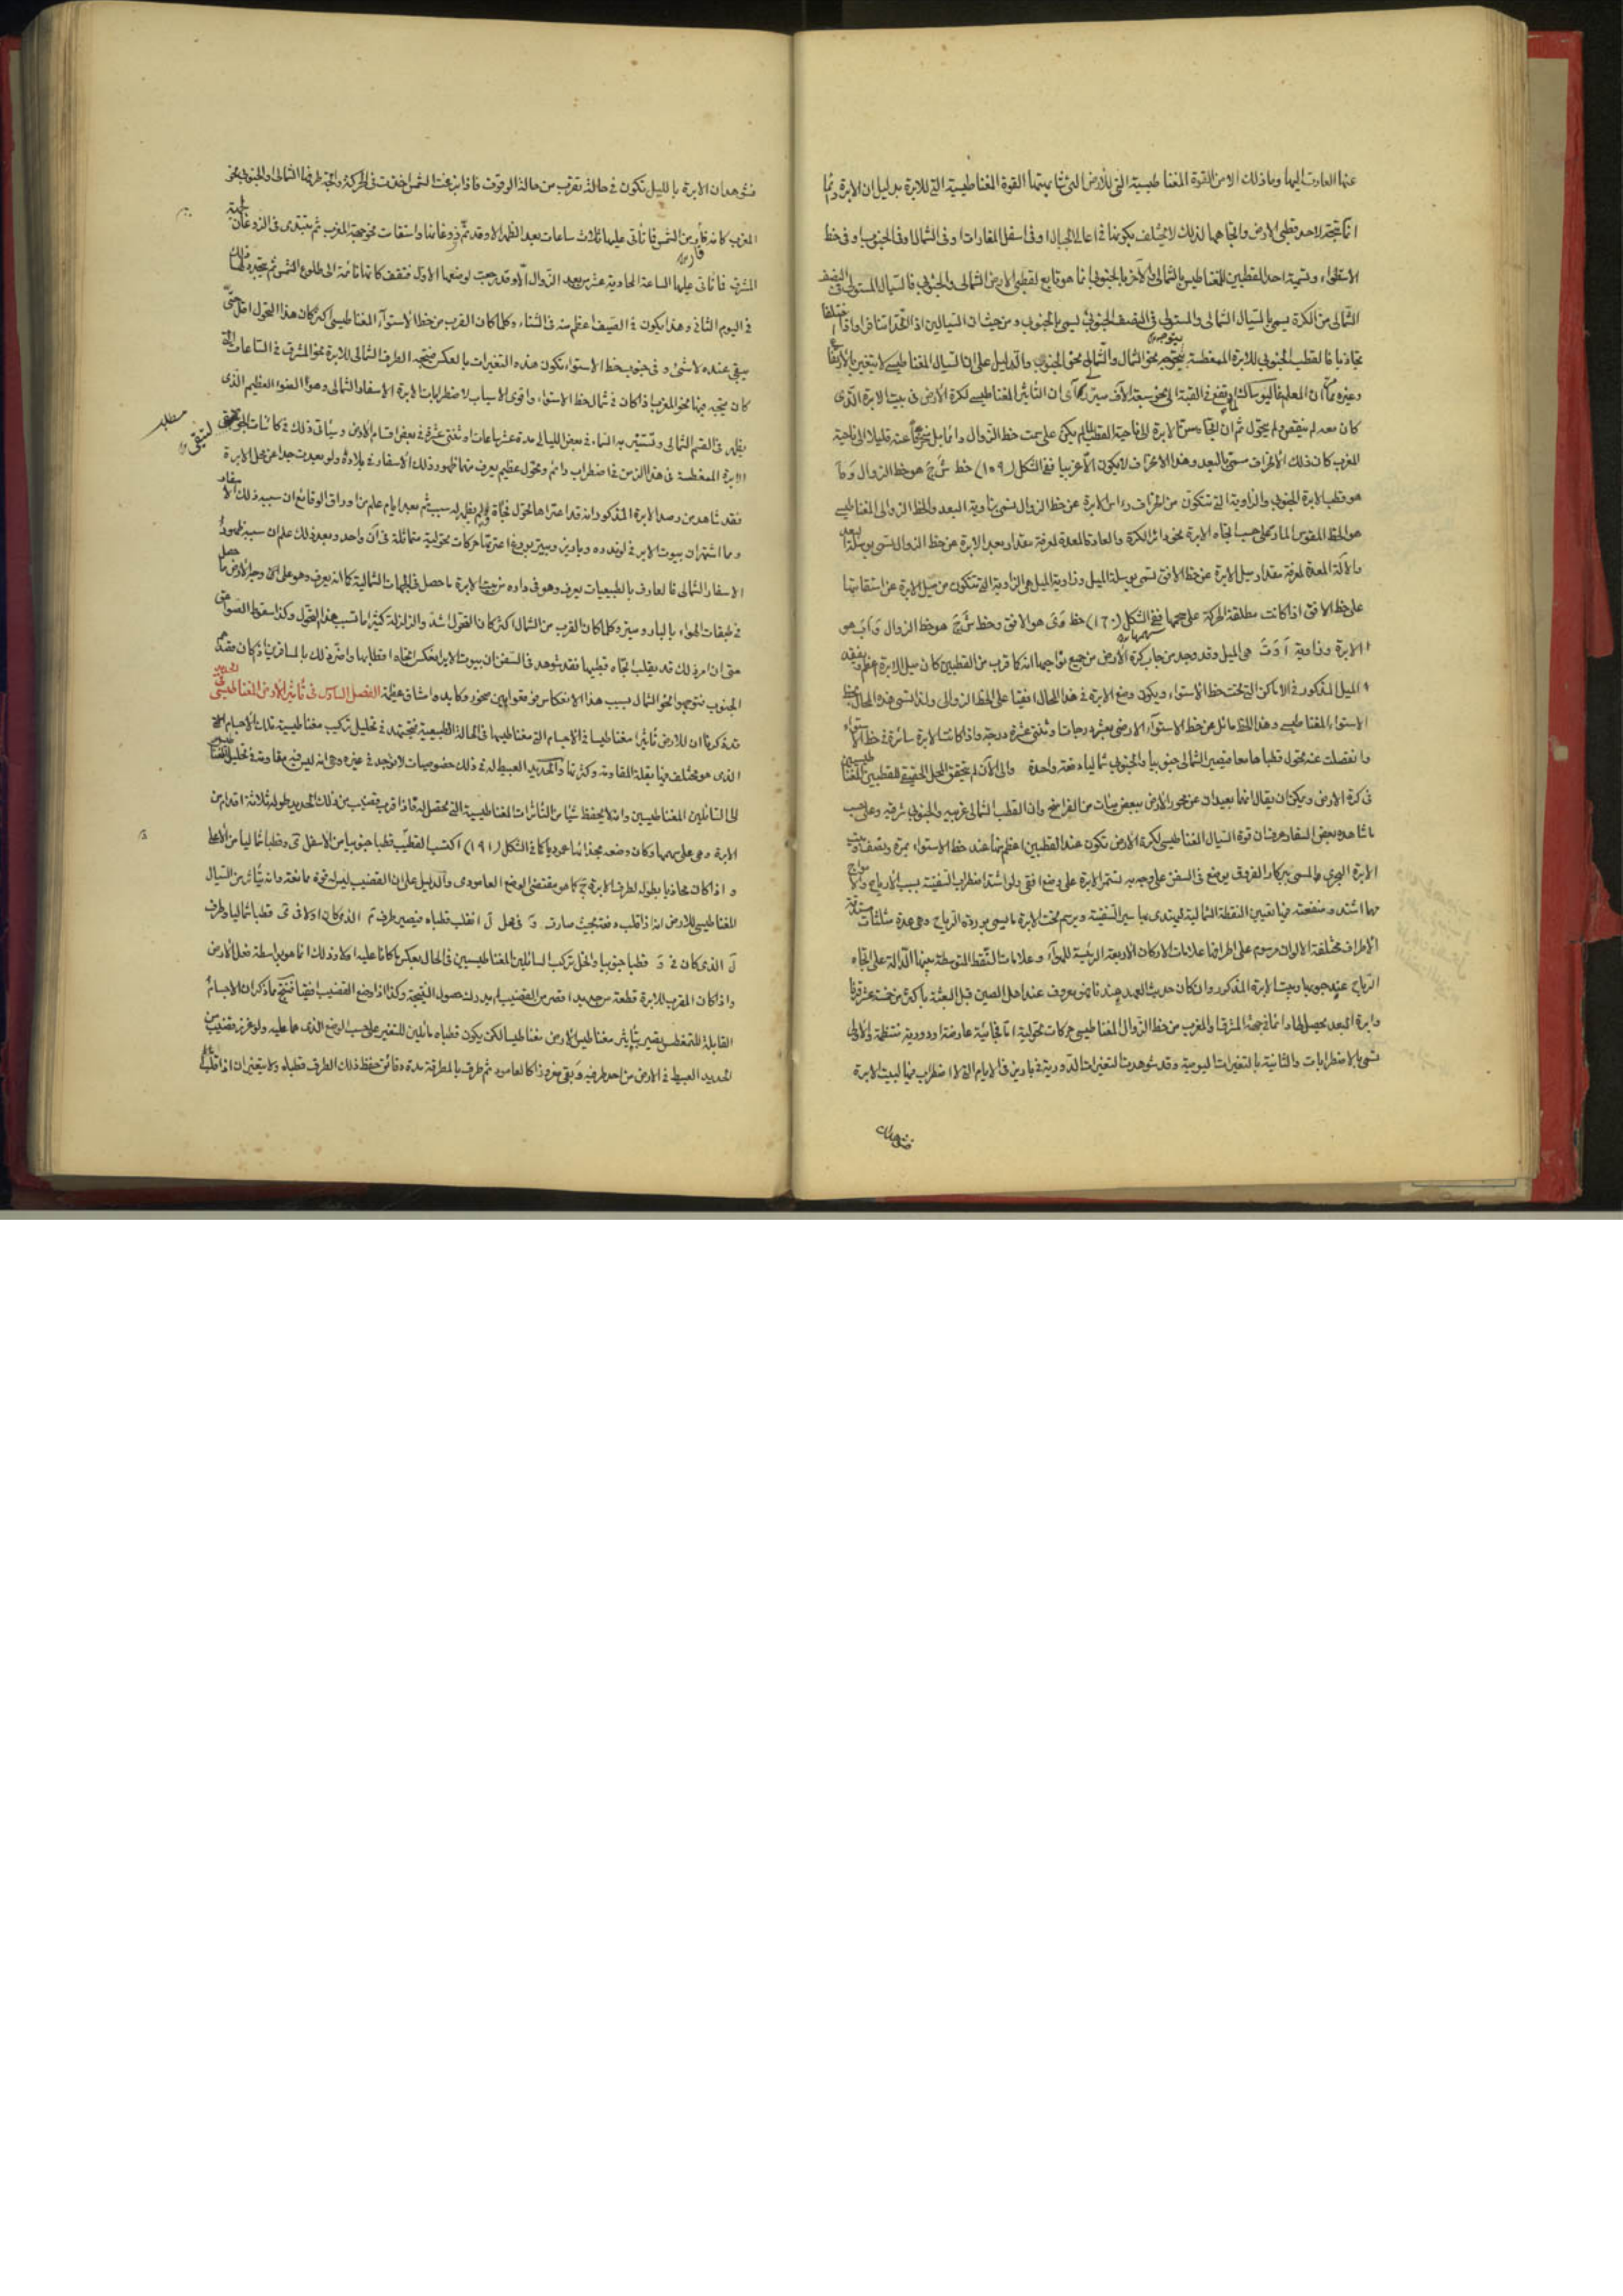 عنها العادت اليها وما ذلك الا من القوة المغناطيسية التي للارض التي تشابهتها القوة المغناطيسية التي للابرة بدليل ان الابرة دائما
انما تتجه لاحد قطبي الارض واتجاهها لذلك لا يختلف بكونها في اعالي الجبال او في اسفل المغارات او في الشمال او في الجنوب او في خط
الاستواء وتسمية احد القطبين للمغناطيس بالشمالي والآخر بالجنوبي انما هو تابع لقطبي الارض الشمالي والجنوبي فالسيال المستولي في النصف
الشمالي من الكرة يسمى بالسيال الشمالي والمستولي في النصف الجنوبي يسمى بالجنوبي ومن حيث ان السيالين اذا اتحدا تنافرا واذا اختلفا
تجاذبا فالقطب الجنوبي للابرة الممغطسة يتوجه نحو الشمال والشمالي نحو الجنوب والدليل على ان السيال المغناطيسي لا يتغير بالارتفاع
وغيره ان المعلم غاليوساك لما ارتفع في القبة الى نحو سبعة آلاف ميتر رأى ان التأثير المغناطيسي لكرة الارض في بيت الابرة الذي
كان معه لم ينقص ولم يتحول ثم ان اتجاه سن الابرة الى ناحية القطب لم يكن على سمت خط الزوال دائما بل ينحرف عنه قليلا الى ناحية
المغرب كان ذلك الانحراف مسمى بالبعد وهذا الانحراف لا يكون الا غربيا ففي الشكل (١٥٩) خط ش ج هو خط الزوال و
هو قطب الابرة الجنوبي والزاوية التي تتكون من انحراف راس الابرة عن خط الزوال تسمى بزاوية البعد والخط الزوالي المغناطيسي
هو الخط المقوس المار على حسب اتجاه الابرة نحو دائر الكرة والعادة المعدة لمعرفة مقدار بعد الابرة عن خط الزوال تسمى بوسلة البعد
والآلة المعدة لمعرفة مقدار ميل الابرة عن خط الافق تسمى بوسلة الميل وزاوية الميل هي الزاوية التي تتكون من ميل الابرة عن استقامتها
على خط الافق اذا كانت مطلقة الحركة على سهمها ففي الشكل (١٦٠) خط هو الافق وخط ش ج هو خط الزوال و آب هو
الابرة وزاوية هي الميل وقد وجد من جانب كرة الارض من جميع نواحيها انه كلما قرب من القطبين كان ميل الابرة اعظم ويفقد
الميل المذكور في الاماكن التي تحت خط الاستواء ويكون وضع الابرة في هذا المحال افقيا على الخط الزوالي ولذا تسمى هذه المحال بخط
الاستواء المغناطيسي وهذا الخط مائل عن خط الاستواء الارضي بعشر درجات وثنتي عشرة درجة واذا كانت الابرة سائرة في خط الاستواء
وانفصلت عنه تحول قطباها معا فيصير الشمالي جنوبيا والجنوبي شماليا دفعة واحدة والى الآن لم يتحقق المحل الحقيقي للقطبين المغناطيسيين
في كرة الارض ويمكن ان يقال انهما بعيدان عن محور الارض ببعض مئات من الفراسخ وان القطب الشمالي غربيه والجنوبي شرقيه وعلى حسب
ما شاهده بعض السفار عرف ان قوة السيال المغناطيسي لكرة الارض تكون عند القطبين اعظم منها عند خط الاستواء بمرة ونصف وبيت
الابرة البحري والمسمى بركار الفروق يوضع في السفن على وجه به تستمر الابرة على وضع افقي ولو اشتد اضطراب السفينة بسبب الارياح والامواج
مهما اشتد ومنفعته فيها تعيين النقطة الشمالية ليهتدى بها سير السفينة ويرسم تحت الابرة ما يسمى بوردة الرياح وهي عدة مثلثات
الاطراف مختلفة الالوان مرسوم على اطرافها علامات الاركان الاربعة الرئيسة للهواء وعلامات النقط المتوسطة بينها الدالة على اتجاه
الرياح عند هبوبها وبيت الابرة المذكور وان كان حديث العهد عندنا فهو معروف عند اهل الصين قبل البعثة باكثر من خمسة عشر قرنا
وابرة البعد يحصل لها دائما في جهة المشرق والمغرب من خط الزوال المغناطيسي حركات تحولية اما فجائية عارضة او دورية منتظمة والاولى
تسمى بالاضطرابات والثانية بالتغيرات اليومية وقد شوهدت التغيرات الدورية في باريز في الايام التي لا اضطراب فيها لبيت الابرة
فشوهد ان
فشوهد ان الابرة بالليل تكون في حالة تقرب من حالة الوقوف فاذا بزغت الشمس اخذت في الحركة واتجه طرفها الشمالي والجنوبي نحو
المغرب كانه فار من الشمس فما تأتي عليها ثلاث ساعات بعد الظهر الا وقد تم زوغانها واستقامت نحو جهة المغرب ثم تبتدي في الزوغان لجهة
المشرق فما تأتي عليها الساعة الحادية عشر من بعد الزوال الا وقد رجعت لوضعها الاول فتقف كانها نائمة الى طلوع الشمس ثم يتجدد ذلك
في اليوم الثاني وهذا يكون في الصيف اعظم منه في الشتاء وكلما كان القرب من خط الاستواء المغناطيسي اكثر كان هذا التحول اقل حتى
يبقى عنده لا شيء وفي جنوب خط الاستواء تكون هذه التغيرات بالعكس فيتجه الطرف الشمالي للابرة نحو المشرق في الساعات التي
كان يتجه فيها نحو المغرب اذا كان في شمال خط الاستواء واقوى الاسباب لاضطرابات الابرة الاسفار الشمالي وهو الضوء العظيم الذي
يظهر في القسم الشمالي وتستنير به السماء في بعض الليالي مدة عشر ساعات او ثنتي عشرة في بعض اقسام الارض وسيأتي ذلك في كائنات الجو
الابرة الممغطسة في هذا الزمن في اضطراب دائم وتحول عظيم يعرف منهما ظهور ذلك الاسفار في بلاده ولو بعدت جدا عن محل الابرة
فقد شاهد من رصد الابرة المذكور انه قد اعتراها التحول فجأة ولم يظهر له سبب ثم بعد ايام علم من اوراق الوقائع ان سبب ذلك الاسفار
ومما اشتهر ان بيوت الابر في لوندره وباريز وبيتربورغ اعترتها حركات تحولية متماثلة في آن واحد وبعد ذلك علم ان سببه ظهور
الاسفار الشمالي فالعارف بالطبيعيات يعرف وهو في داره من بيت الابرة ما حصل في الجهات الشمالية كما انه يعرف وهو على وجه الارض ما حصل
في طبقات الهواء بالبارومتر وكلما كان القرب من الشمال اكثر كان التحول اشد والزلزلة كثيرا ما تسبب هذا التحول وكذا سقوط الصواعق
حتى ان امر ذلك قد يقلب اتجاه قطبيها فقد شوهد في السفن ان بيوت الابر انعكس اتجاه اقطابها واضر ذلك بالمسافرين اذ كان مقصدهم
الجنوب فتوجهوا نحو الشمال بسبب هذا الانعكاس فوقعوا بين صخور ومكابده ومشاق عظيمة الفصل السادس في تأثير الارض المغناطيسي في الحديد
قد ذكرنا ان للارض تأثيرا مغناطيسيا في الاجسام التي مغناطيسها في الحالة الطبيعية فتجتهد في تحليل تركيب مغناطيسية تلك الاجسام التحليل
الذي هو مختلف فيها بقلة المقاومة وكثرتها وللحديد العبيط له في ذلك خصوصيات لا توجد في غيره وهي انه ليس فيه مقاومة في تحليل المغناطيس
الى السائلين المغناطيسيين وانه لا يحفظ شيئا من التأثرات المغناطيسية التي تحصل له فاذا قرب قضيب من ذلك الحديد طوله ثلاثة اقدام من
الابرة وهي على سهمها وكان وضعه بحذائها عموديا كما في الشكل (١٦١) اكتسب القضيب قطبا جنوبيا من الاسفل وقطبا شماليا من الاعلى
واذا كان محاذيا بطوله لطرف الابرة كما هو مقتضى الوضع العامودي والدليل على ان القضيب ليس له قوة ممانعة وانه يتأثر من السيال
المغناطيسي للارض انه اذا قلب دفعة بحيث صارت في محل ل انقلب قطباه فيصير طرف الذي كان اولا قطبا شماليا وطرف
ل الذي كان في قطبا جنوبيا وانحل تركيب السائلين المغناطيسيين في الحال بعكس ما كانا عليه اولا وذلك انما هو بواسطة فعل الارض
واذا كان المقرب للابرة قطعة من حديد اقصر من القضيب لم يدرك حصول النتيجة وكذا اذا وضع القضيب افقيا فنتج مما ذكر ان الاجسام
القابلة للتمغطس يصير بتأثير مغناطيس الارض مغناطيسا لكن يكون قطباه مائلين للتغير على حسب الوضع الذي هما عليه ولو غرز قضيب من
الحديد العبيط في الارض من احد طرفيه وبقي مغروزا كالعامود ثم طرق بالمطرقة مدة دقائق حفظ ذلك الطرف قطباه ولا يتغيران اذا قلب